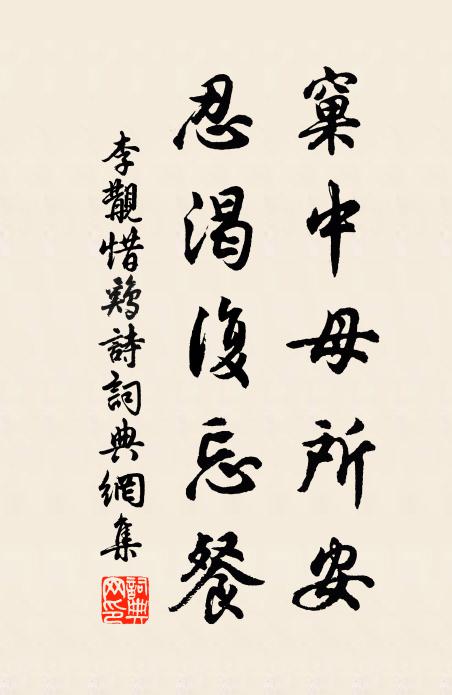 窠中母所安
忍渴復忘餐
李覯惜鷄詩詞典網集
詞典
网印